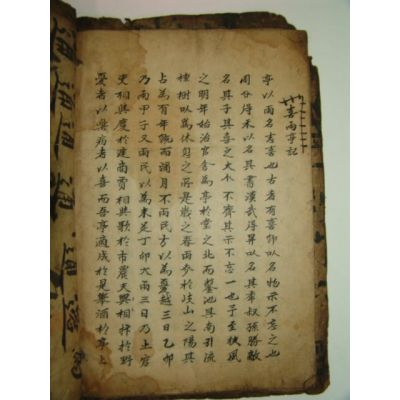 喜雨亭記
亭以雨名志喜也古者有喜卽以名物示不忘之也
周公得禾以名其書漢武得鼎以名其年叔孫勝敵
名其子其喜之大小不齊其示不忘一也予至扶風
之明年始治官舍爲亭於堂之北而鑿池其南引流
種樹以爲休息之所是歲之春雨麥於岐山之陽其
占爲有年旣而彌月不雨民方以爲憂越三日乙卯
乃雨甲子又雨民以爲未足丁卯大雨三日乃止官
吏相與慶於庭商賈相與歌於市農夫相與抃於野
憂者以樂病者以喜而吾亭適成於是擧酒於亭上